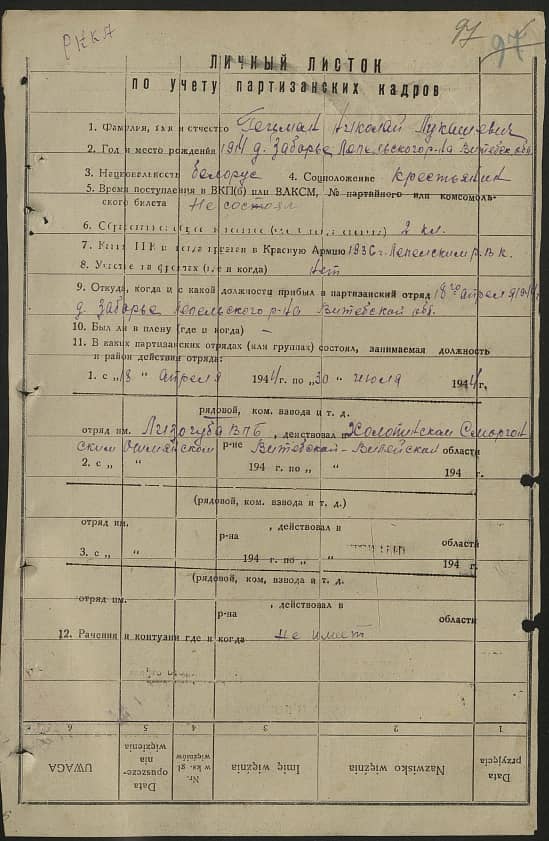 РККА
97 97
ЛИЧНЫЙ ЛИСТОК
по учету партизанских кадров
1. Фамилия, имя и отчество Гецман Николай Лукашевич
2. Год и место рождения 1914 д. Заборье Лепельского р-на Витебск. обл.
3. Национальность белорус 4. Соцположение крестьянин
5. Время поступления в ВКП(б) или ВЛКСМ, № партийного или комсомоль-
ского билета Не состоял
6. 2 кл.
7. и когда призван в Красную Армию 1936 г. Лепельским Р.В.К.
8. Участие на фронтах (где и когда) нет
9. Откуда, когда и с какой должности прибыл в партизанский отряд 18го апреля 1944
д. Заборье Лепельского р-на Витебской обл.
10. Был ли в плену (где и когда) —
11. В каких партизанских отрядах (или группах) состоял, занимаемая должность
и район действия отряда:
1. с „18 “ апреля 1944 г. по „30 “ июля 1944 г,
рядовой, ком. взвода и т. д.
отряд им. Лизогуба ВПБ , действовал в Холопинском Сморгон
ским р-не Витебской-Вилейской области
2. с „ “ 194 г. по „ “ 194 г.
(рядовой, ком. взвода и т. д.)
отряд им. , действовал в
р-на области
3. с „ “ 194 г. по „ “ 194 г.
(рядовой, ком, взвода и т. д.
отряд им. , действовал в
р-на области
12. Ранения и контузии где и когда Не имеет
6 5 4 3 2 1
UWAGA
Data opuszcze-nia więzienia
Nr. w ks. gł. więźniów
Imię więźnia
Nazwisko więźnia
Data przyjęcia